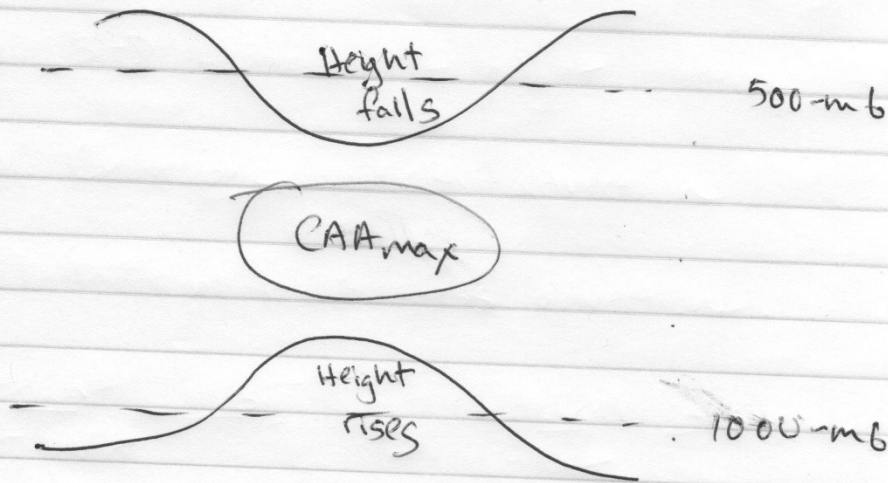 Height
falls
500-mb
CAAmax
Height
rises
1000-mb